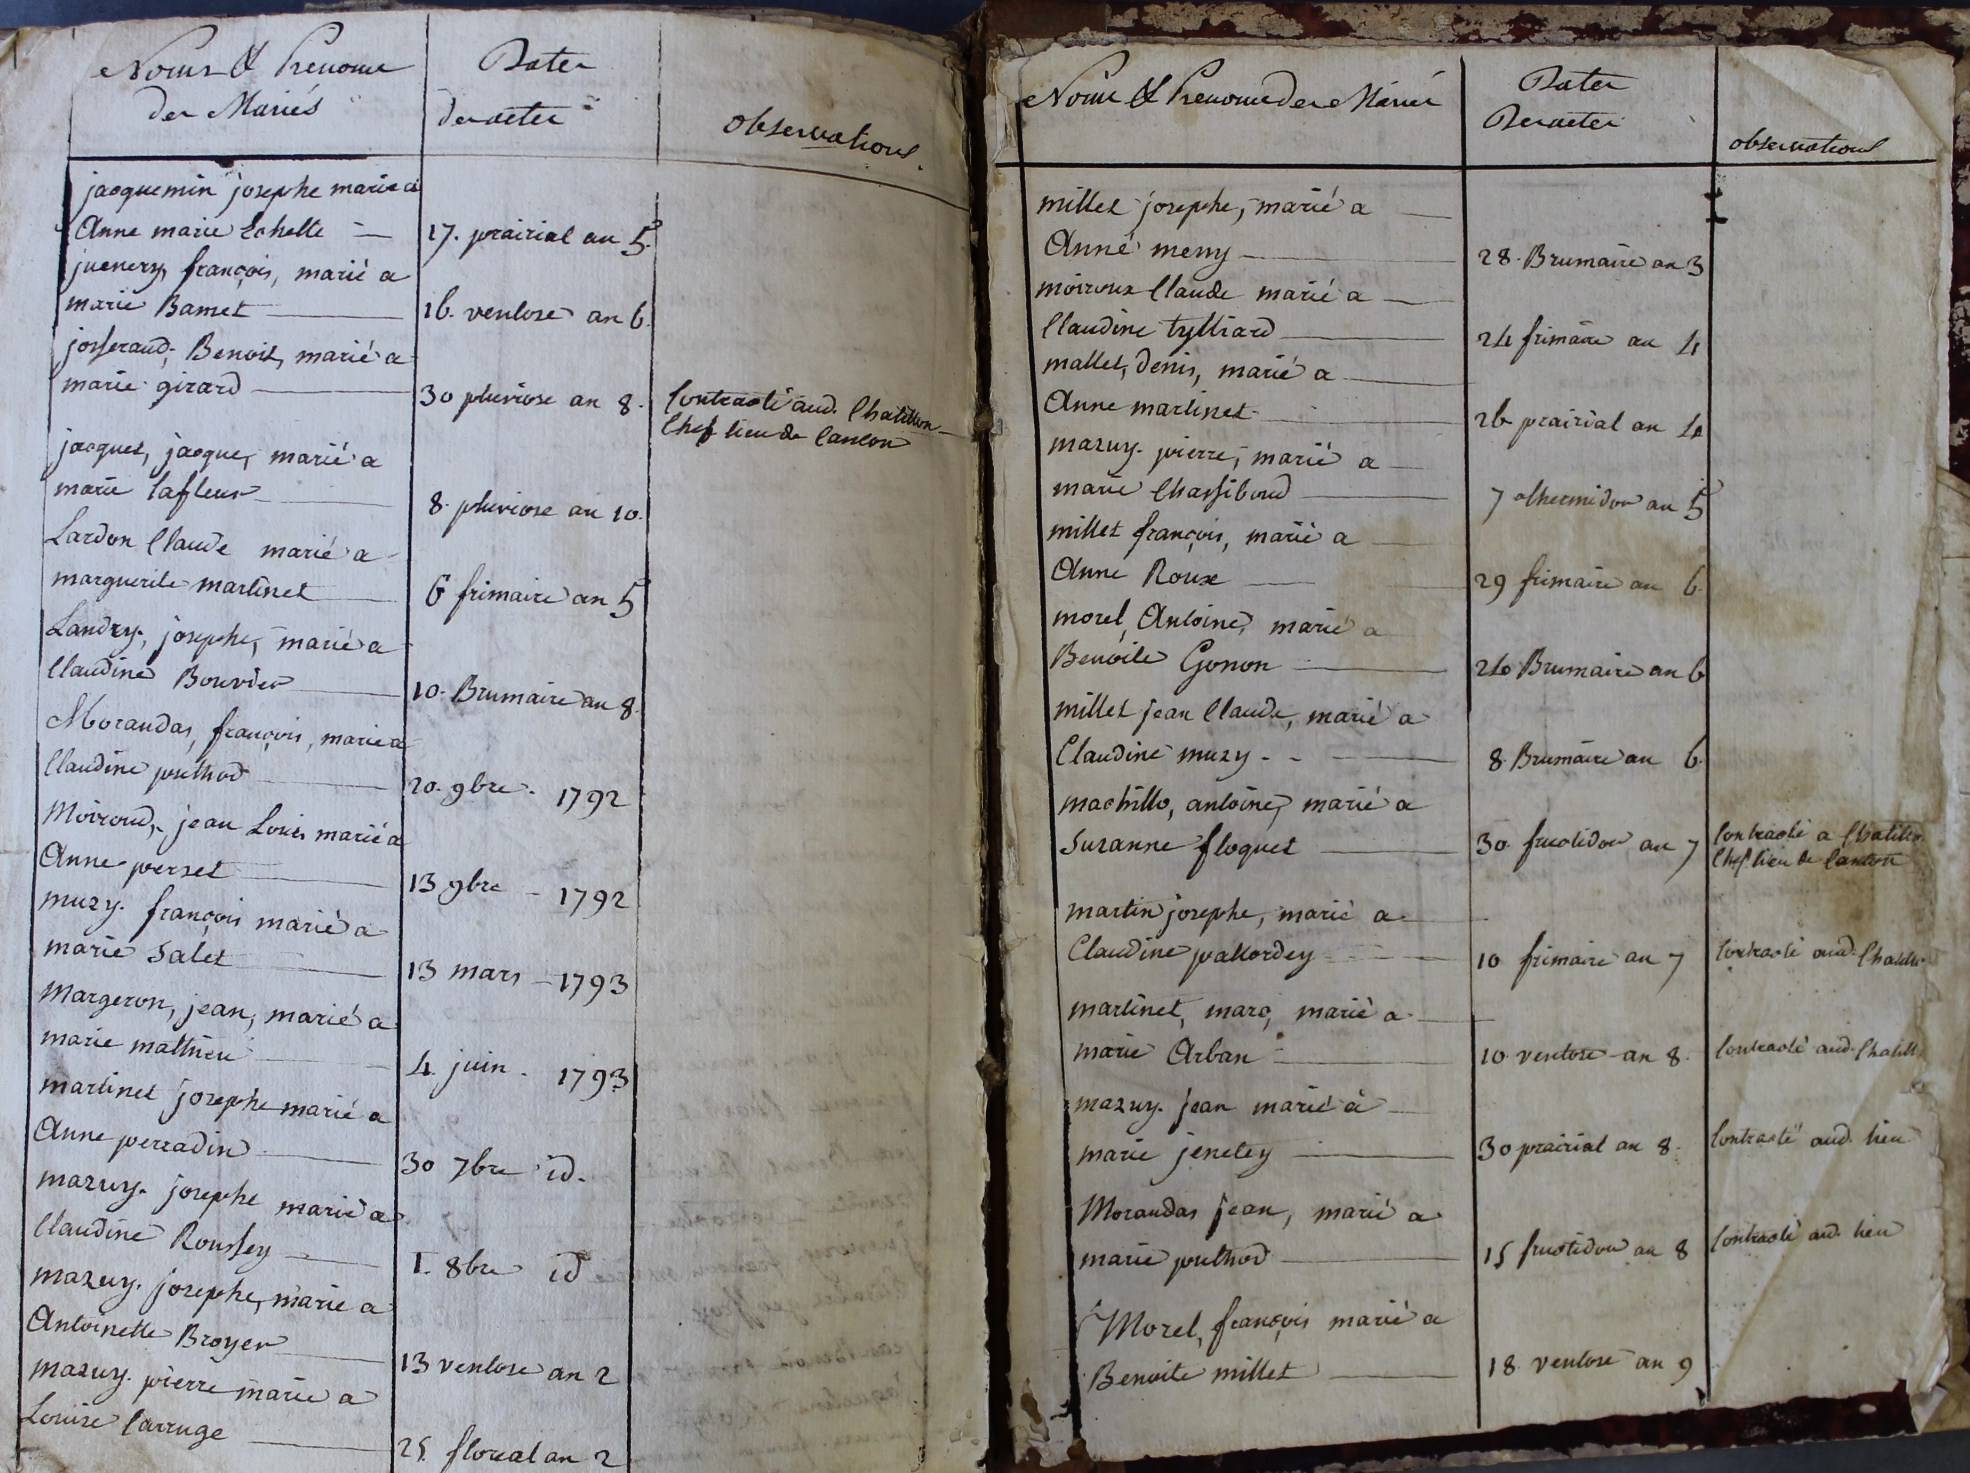 Noms & Prenoms
des Mariés
Dates
des actes
observations
jacquemin josephe marié a
Anne marie Echelle
17. prairial an 5
juenery, françois, marié a
marie Bamet
16. ventose an 6.
josserand, Benoit, marié a
marie girard
30 pluviose an 8.
Contracté aud. Chatillon
Chef lieu de Canton
jacques, jacque, marié a
marie lafleur
8. pluviose an 10.
Lardon Claude marié a
marguerite martinet
6 frimaire an 5
Landry, josephe, marié a
Claudine Bouvier
10. Brumaire an 8.
Morandas, françois, marié a
Claudine puthod
20. 9bre. 1792
Moiroud, jean Louis marié a
Anne perset
13 9bre 1792
muzy. françois marié a
marie Salet
13 mars 1793
Margeron, jean, marié a
marie mathieu
4 juin. 1793
martinet josephe marié a
Anne perradin
30 7bre id.
mazuy. josephe marié a
Claudine Roussey
1. 8bre id
mazuy. josephe, marié a
Antoinette Broyer
13 ventose an 2
mazuy. pierre marié a
Louise Carruge
25 floreal an 2
Noms & Prenoms des Mariés
Dates
Des actes
observations
millet josephe, marié a
Anne meny
28. Brumaire an 3
moiroux Claude marié a
Claudine tylliard
24 frimaire an 4
mallet, denis, marié a
Anne martinet
26 prairial an 4
mazuy. pierre, marié a
marie Chassiboud
7 thermidor an 5
millet françois, marié a
Anne Roux
29 frimaire an 6.
morel, Antoine, marié a
Benoite Gonon
24 Brumaire an 6
millet jean Claude, marié a
Claudine muzy
8. Brumaire an 6.
machillo, antoine, marié a
Suzanne floquet
30. fructidor an 7
Contracté a Chatillon
Chef lieu de Canton
martin josephe, marié a
Claudine pallordey
10 frimaire an 7
Contracté aud. Chatillon
martinet, marc, marié a
marie Arban
10 ventose an 8.
Contracté aud. Chatill
mazuy. jean marié a
marie jenetey
30 prairial an 8.
Contracté aud. lieu
Morandas jean, marié a
marie puthod
15 fructidor an 8
Contracté aud. lieu
Morel, françois marié a
Benoite millet
18. ventose an 9